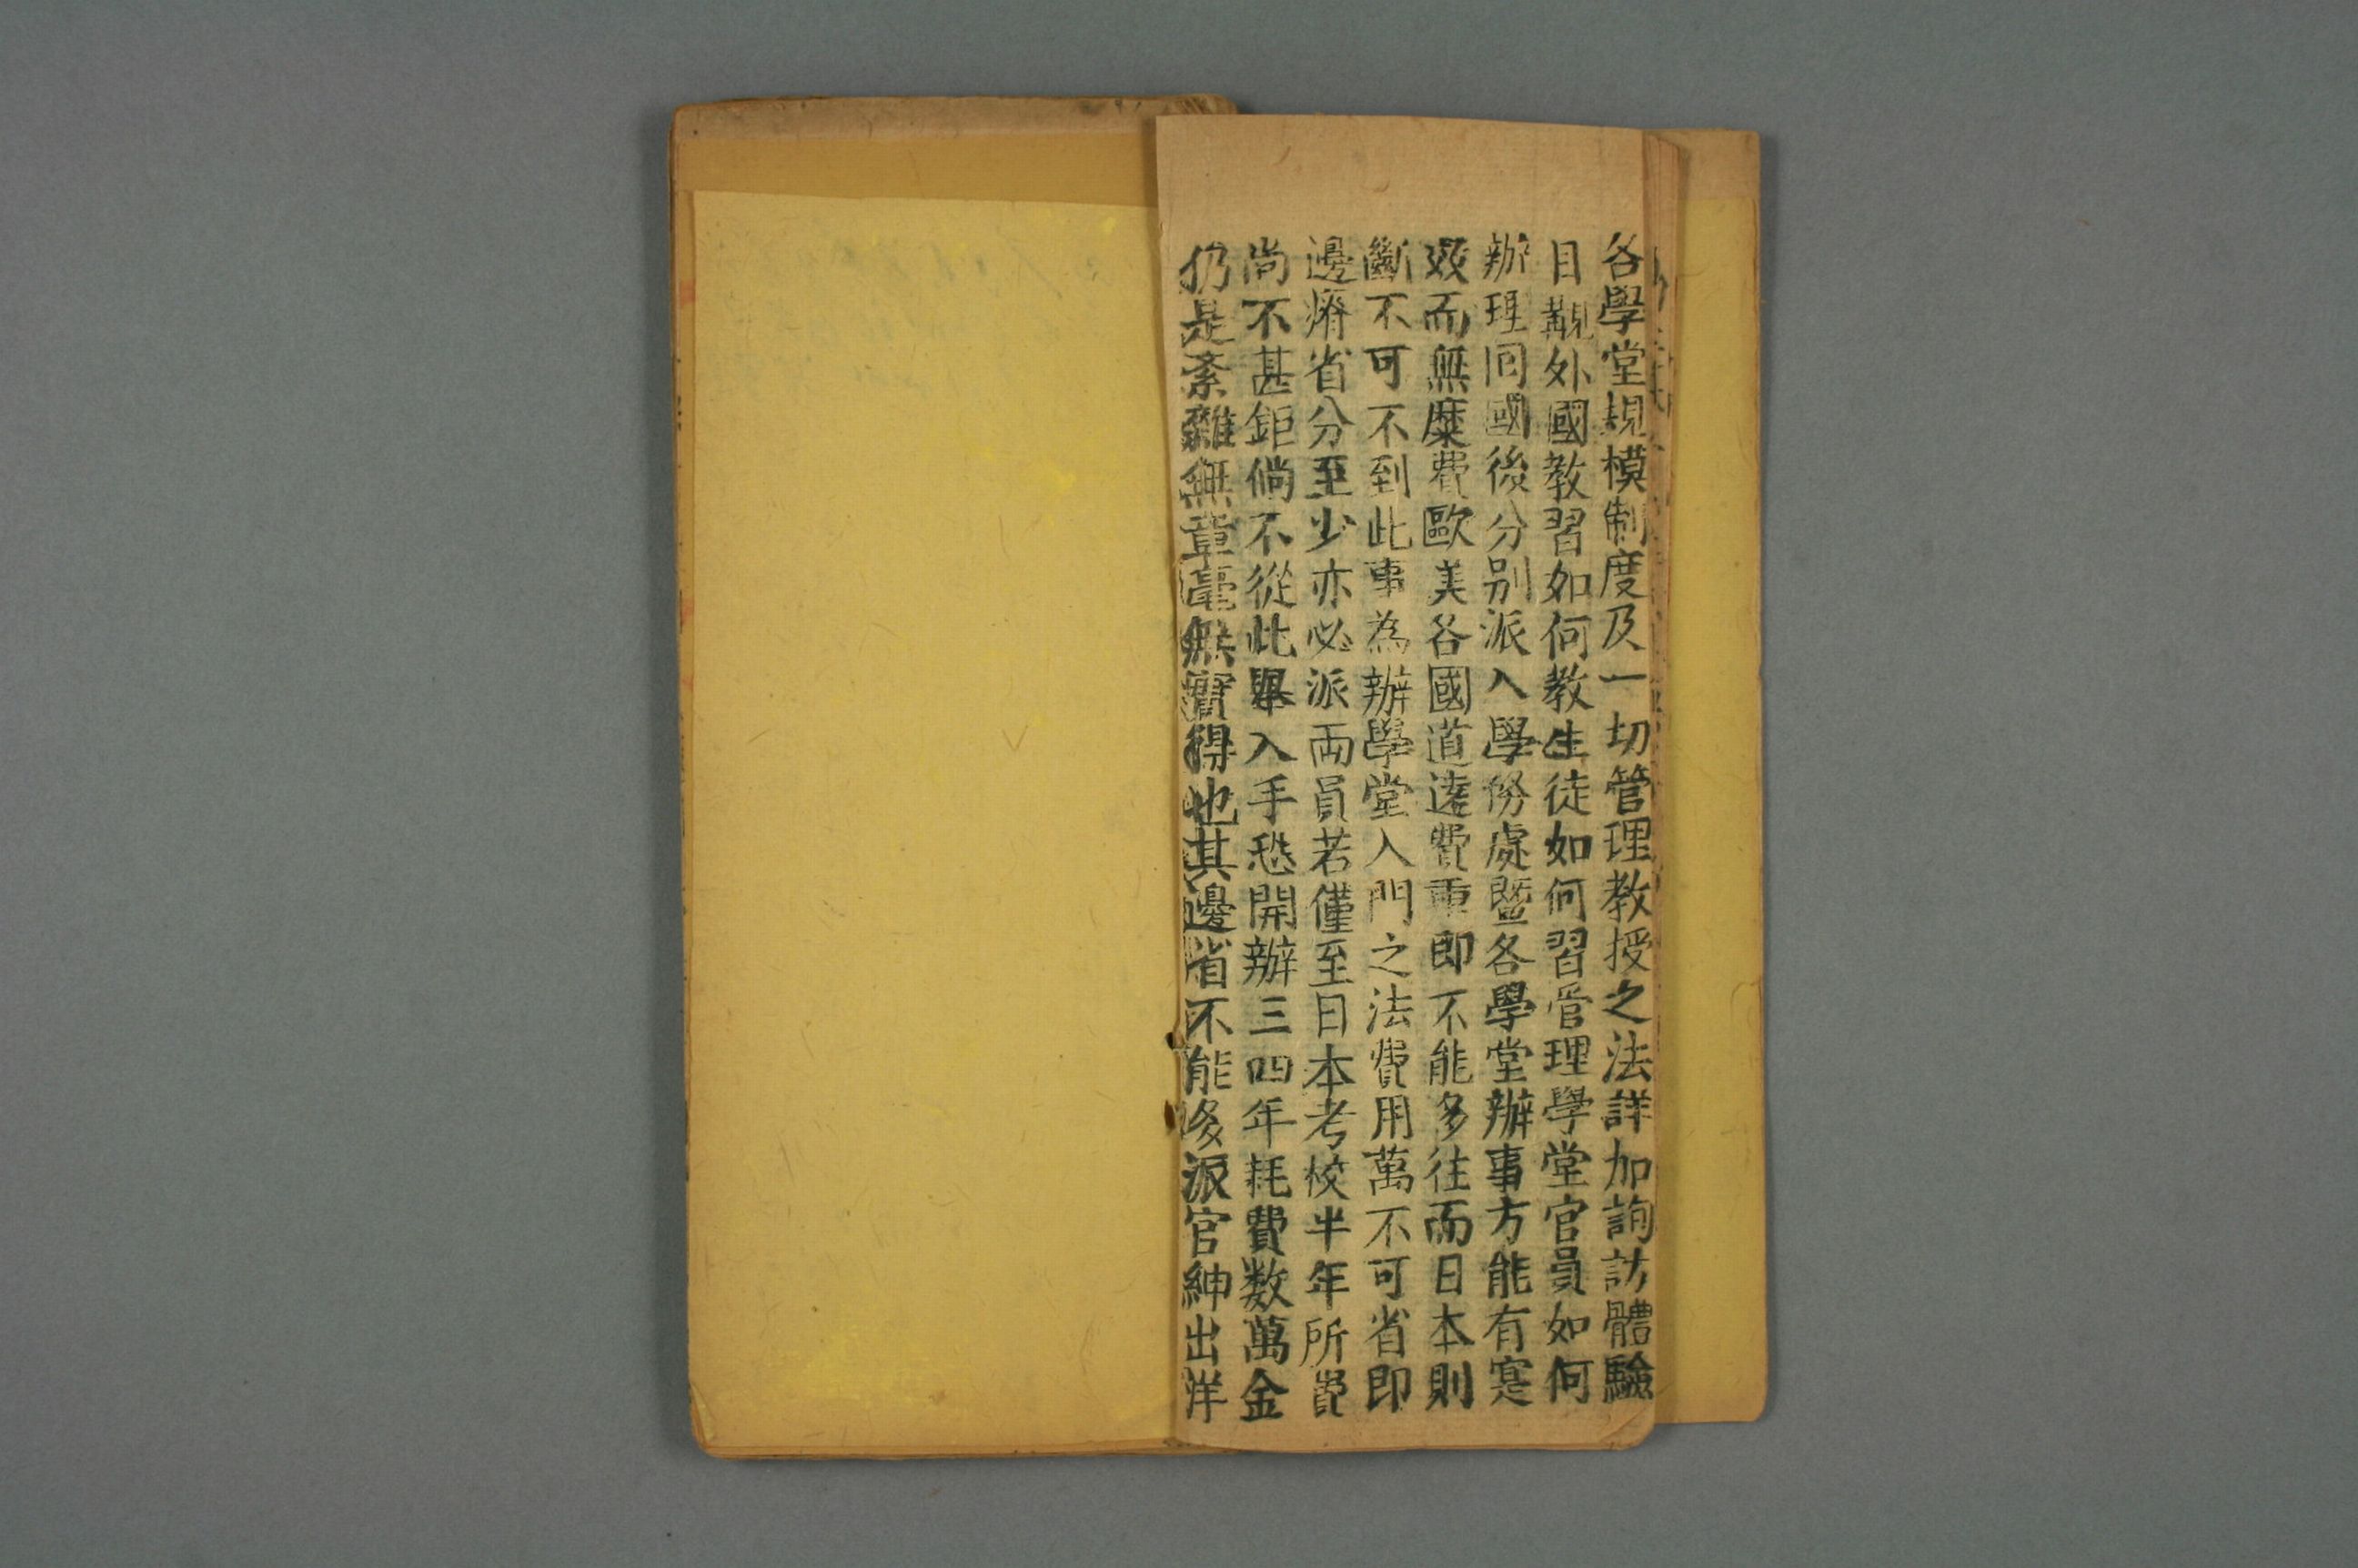 各學堂規模制度及一切管理教授之法詳加詢訪體驗
目覩外國教習如何教生徒如何習管理學堂官員如何
辦理回國後分别派入學務處暨各學堂辦事方能有寔
效而無糜費歐美各國道遠費重即不能多往而日本則
斷不可不到此事為辦學堂入門之法費用萬不可省即
邊瘠省分至少亦必派両員若僅至日本考校半年所費
尚不甚鉅倘不從此舉入手恐開辦三四年耗費数萬金
仍是紊雜無章毫無實得也其邊省不能多派官紳出洋